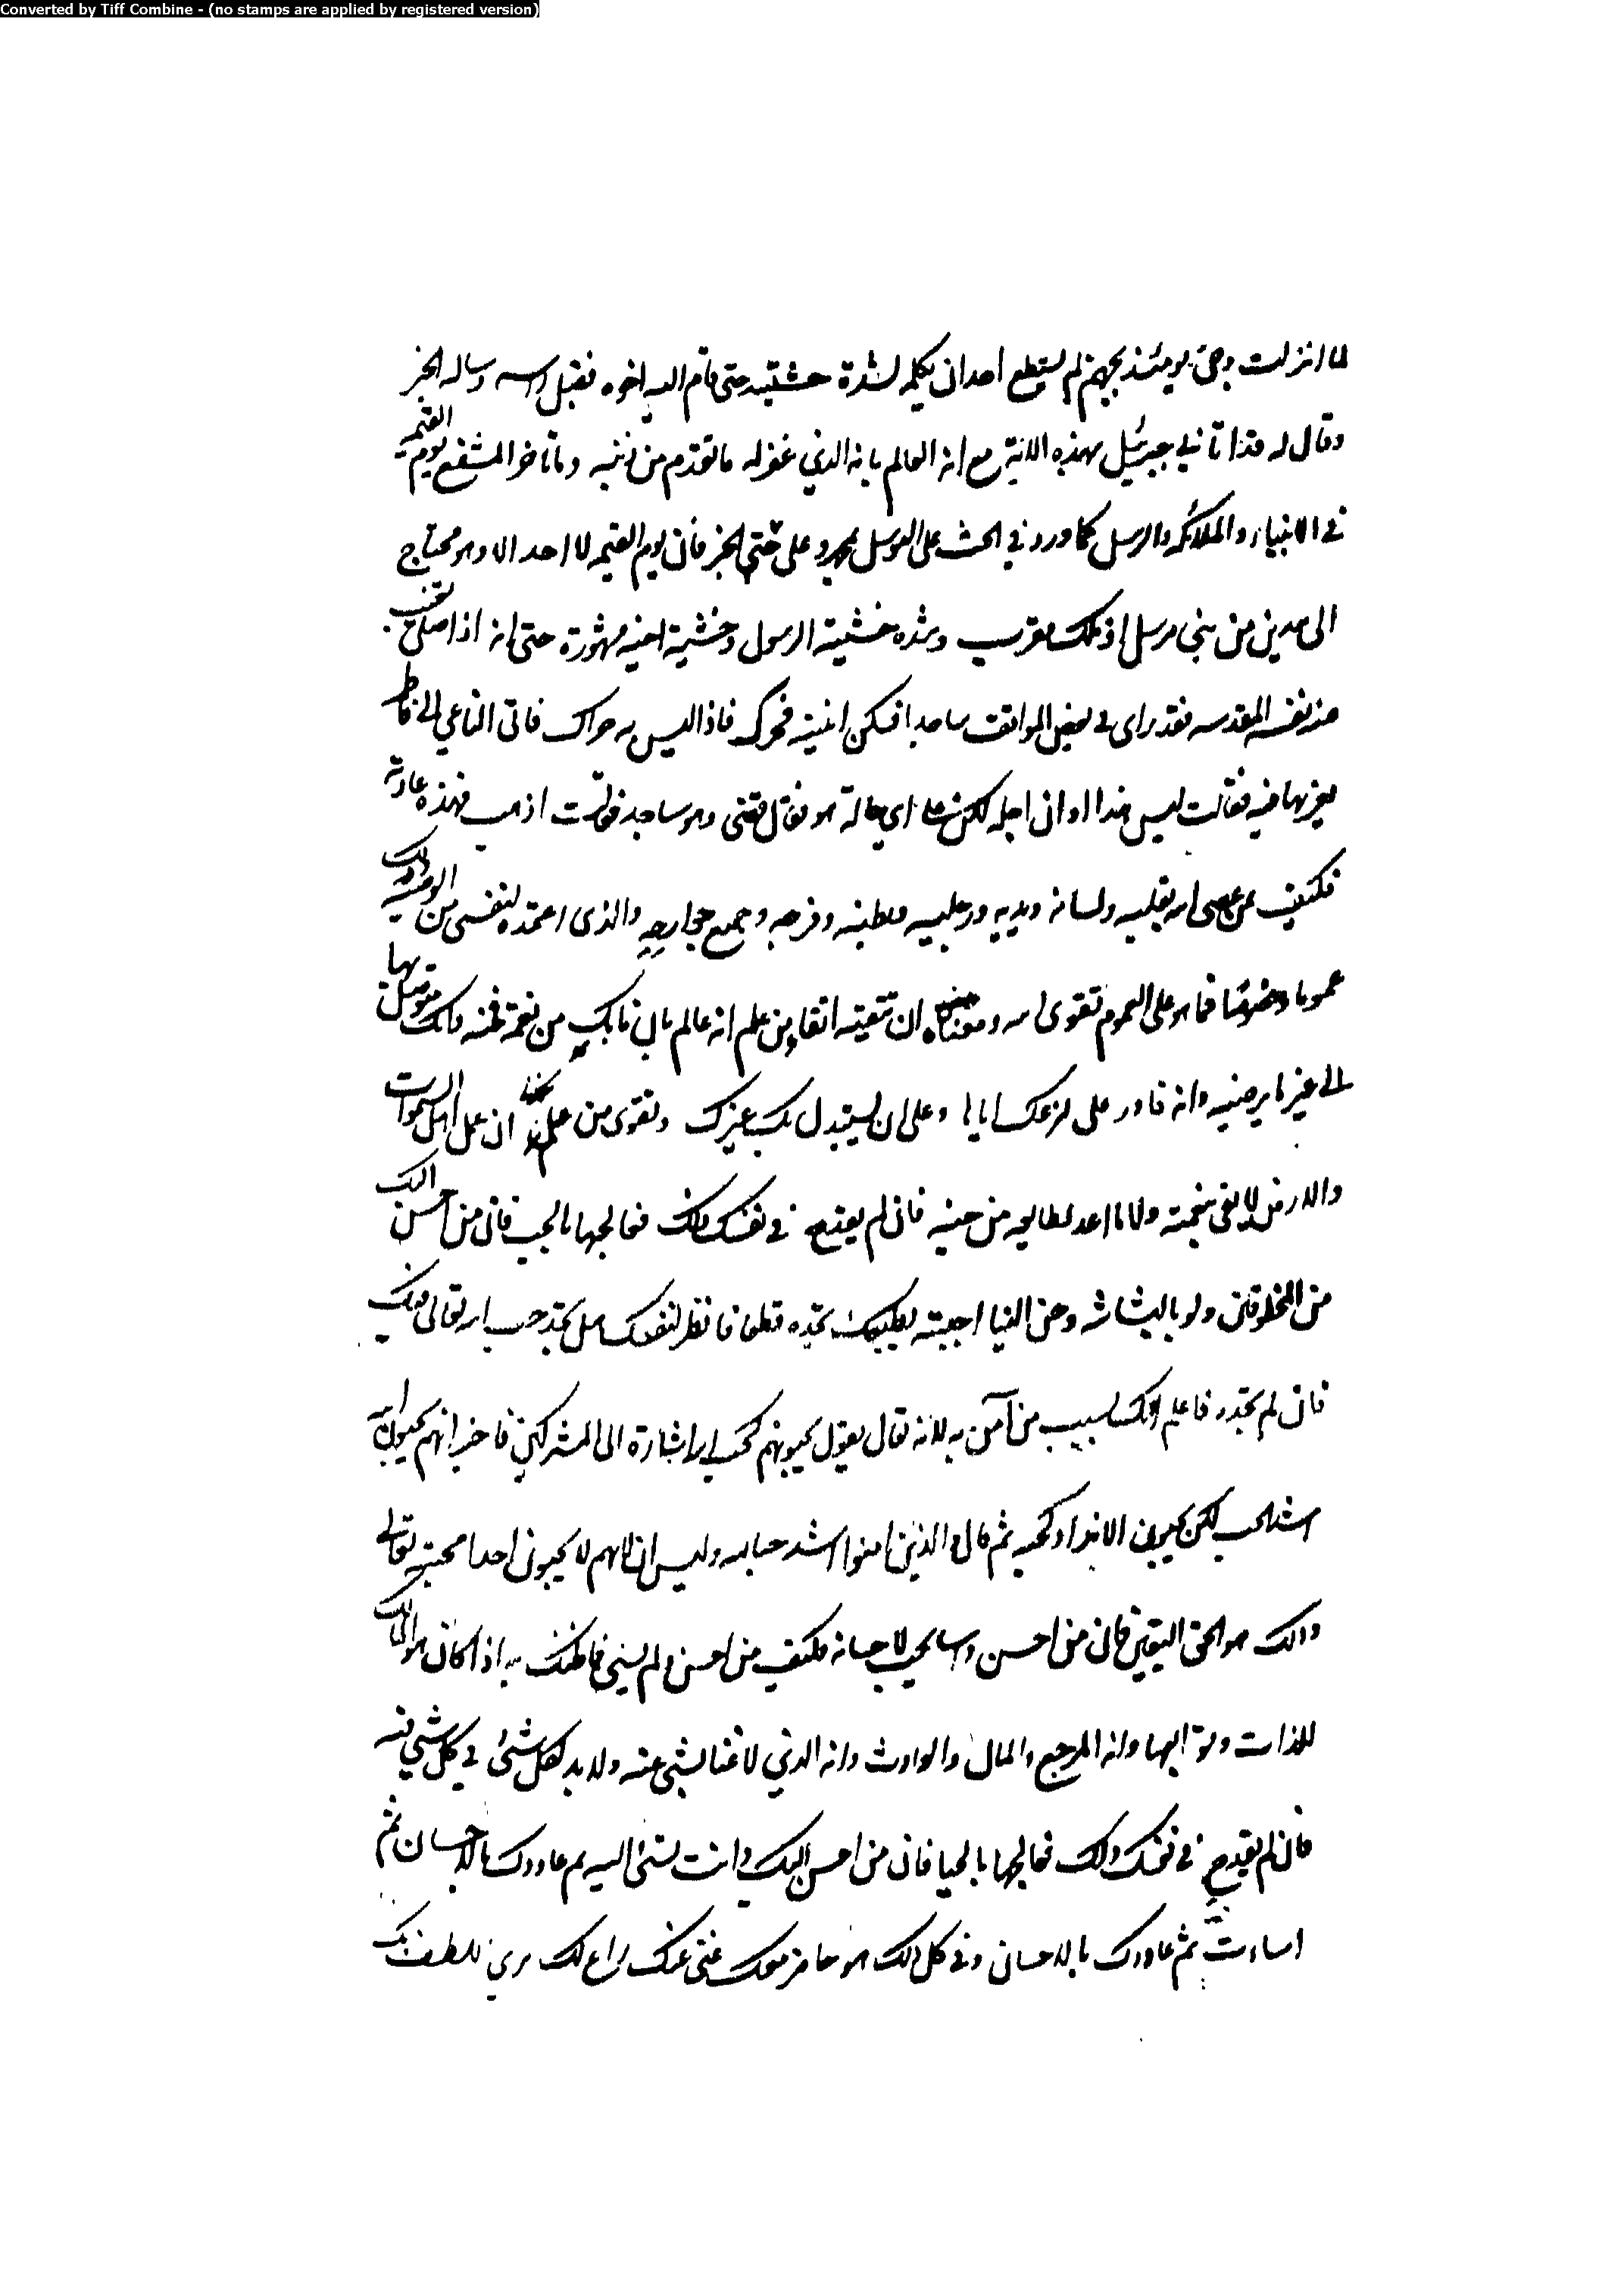 Converted by Tiff Combine - (no stamps are applied by registered version)
لما انزلت وجئ يومئذ بجهنم لم يستطع احد ان يكلمه لشدة خشيته حتى قام اليه اخوه فقبل راسه وساله الخبر
وقال له قد اتاني جبرئيل بهذه الاية مع انه العالم بانه الذي غفر له ما تقدم من ذنبه وما تاخر المشفع يوم القيمة
في الانبياء والملائكه والرسل كما ورد في الحث على التوسل بمحمد وعلى حتى الخبر فان يوم القيمه لا احد الا وهو محتاج
الى هذين من نبي مرسل او ملك مقرب وشده خشية الرسول وخشية اخيه مشهورة حتى انه اذا صلى
نفسه المقدسه فقد راى في بعض المواقف ساجدا فسكن انينه فحرك فاذا ليس به حراك فاتى الناعي الى فاطمه
يعزيها فيه فقالت ليس هذا اوان اجله لكن على اي حالة هو فقال قضى وهو ساجد فقالت اذهب فهذه عادته
فكيف من عصى الله بقلبه ولسانه ويديه ورجليه وبطنه وفرجه وجميع جوارحه والذي اعتمده لنفسي من الوصية ذلك
عموما وخصوصا فما هو على العموم تقوى الله ومعناه ان تتقيه اتقاء من علم انه عالم بان ما بك من نعمة فمنه وانك متوصل بها
الى غير ما يرضيه وانه قادر على نزعك اياها وعلى ان يستبدل بك غيرك وتقوى من علم ان عمل اهل السموات
والارض لا يفى بنعمته ولا ما اعد لطايعه من جنته فان لم يقدح في نفسك ذلك فعالجها بالحب فان من احسن اليك
من المخلوقين ولو بالبشاشه وحق الفيا احببته بطبعك تجده قطعا فانظر لنفسك هل تجد حب الله تعالى منك
فان لم تجده فاعلم انك لست ممن آمن به لانه تعالى يقول يحبونهم كحب الله اشارة الى المشركين فاخبر انهم يحبون الله
اشد الحب لكن يحبون الانداد كحبه ثم قال والذين امنوا اشد حبا لله وليس ان لهم لا يحبون احدا محبته تعالى
وذلك هو الحق اليقين فان من احسن واسا يحب لاحسانه فكيف من احسن ولم يسئ فاظنك به اذا كان هو المالك
للذات وتوابعها وانه المرجع والمال والوارث وانه الذي لا غنا لشئ عنه ولا بد لكل شئ في كل شئ منه
فان لم يقدح في نفسك ذلك فعالجها بالحيا فان من احسن اليك وانت تسئ اليه ثم عاودك بالاحسان ثم
اساءت ثم عاودك بالاحسان وفي كل ذلك هو حاضر معك غنى عنك راع لك مريد للطف بك